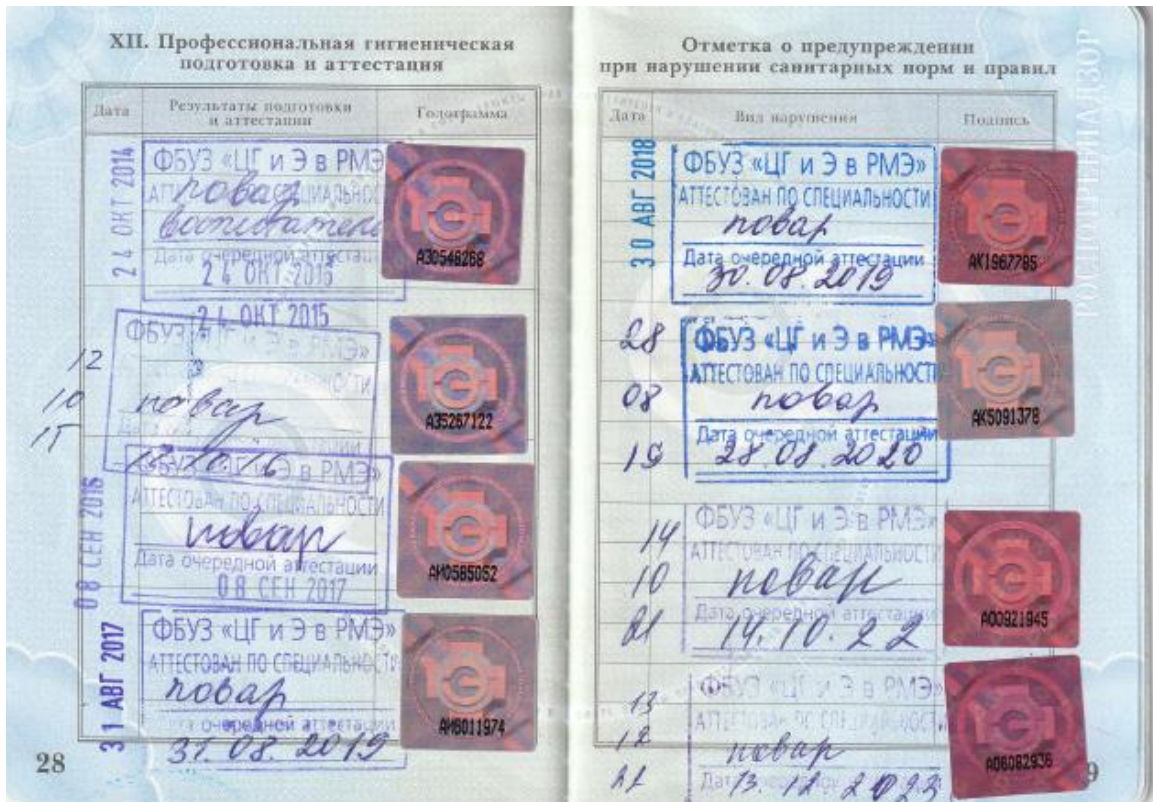 XII. Профессиональная гигиеническая
подготовка и аттестация
Дата
Результаты подготовки
и аттестации
Голограмма
24 ОКТ 2014
ФБУЗ «ЦГ и Э в РМЭ»
повар
воспитатель
Дата очередной аттестации
24 ОКТ 2015
А30548268
24 ОКТ 2015
12
10
15
ФБУЗ «ЦГ и Э в РМЭ»
повар
А35267122
08 СЕН 2016
ФБУЗ «ЦГ и Э в РМЭ»
АТТЕСТОВАН ПО СПЕЦИАЛЬНОСТИ
повар
Дата очередной аттестации
08 СЕН 2017
АИ0585052
31 АВГ 2017
ФБУЗ «ЦГ и Э в РМЭ»
АТТЕСТОВАН ПО СПЕЦИАЛЬНОСТИ
повар
Дата очередной аттестации
31.08.2019
АИ6011974
28
Отметка о предупреждении
при нарушении санитарных норм и правил
Дата
Вид нарушения
Подпись
РОСПОТРЕБНАДЗОР
30 АВГ 2018
ФБУЗ «ЦГ и Э в РМЭ»
АТТЕСТОВАН ПО СПЕЦИАЛЬНОСТИ
повар
Дата очередной аттестации
30.08.2019
АК1967785
28
08
19
ФБУЗ «ЦГ и Э в РМЭ»
АТТЕСТОВАН ПО СПЕЦИАЛЬНОСТИ
повар
Дата очередной аттестации
28.08.2020
АК5091378
14
10
21
ФБУЗ «ЦГ и Э в РМЭ»
АТТЕСТОВАН ПО СПЕЦИАЛЬНОСТИ
повар
Дата очередной аттестации
14.10.22
АО0921945
13
12
21
ФБУЗ «ЦГ и Э в РМЭ»
АТТЕСТОВАН ПО СПЕЦИАЛЬНОСТИ
повар
Дата 13.12.2023
АО6082936
9